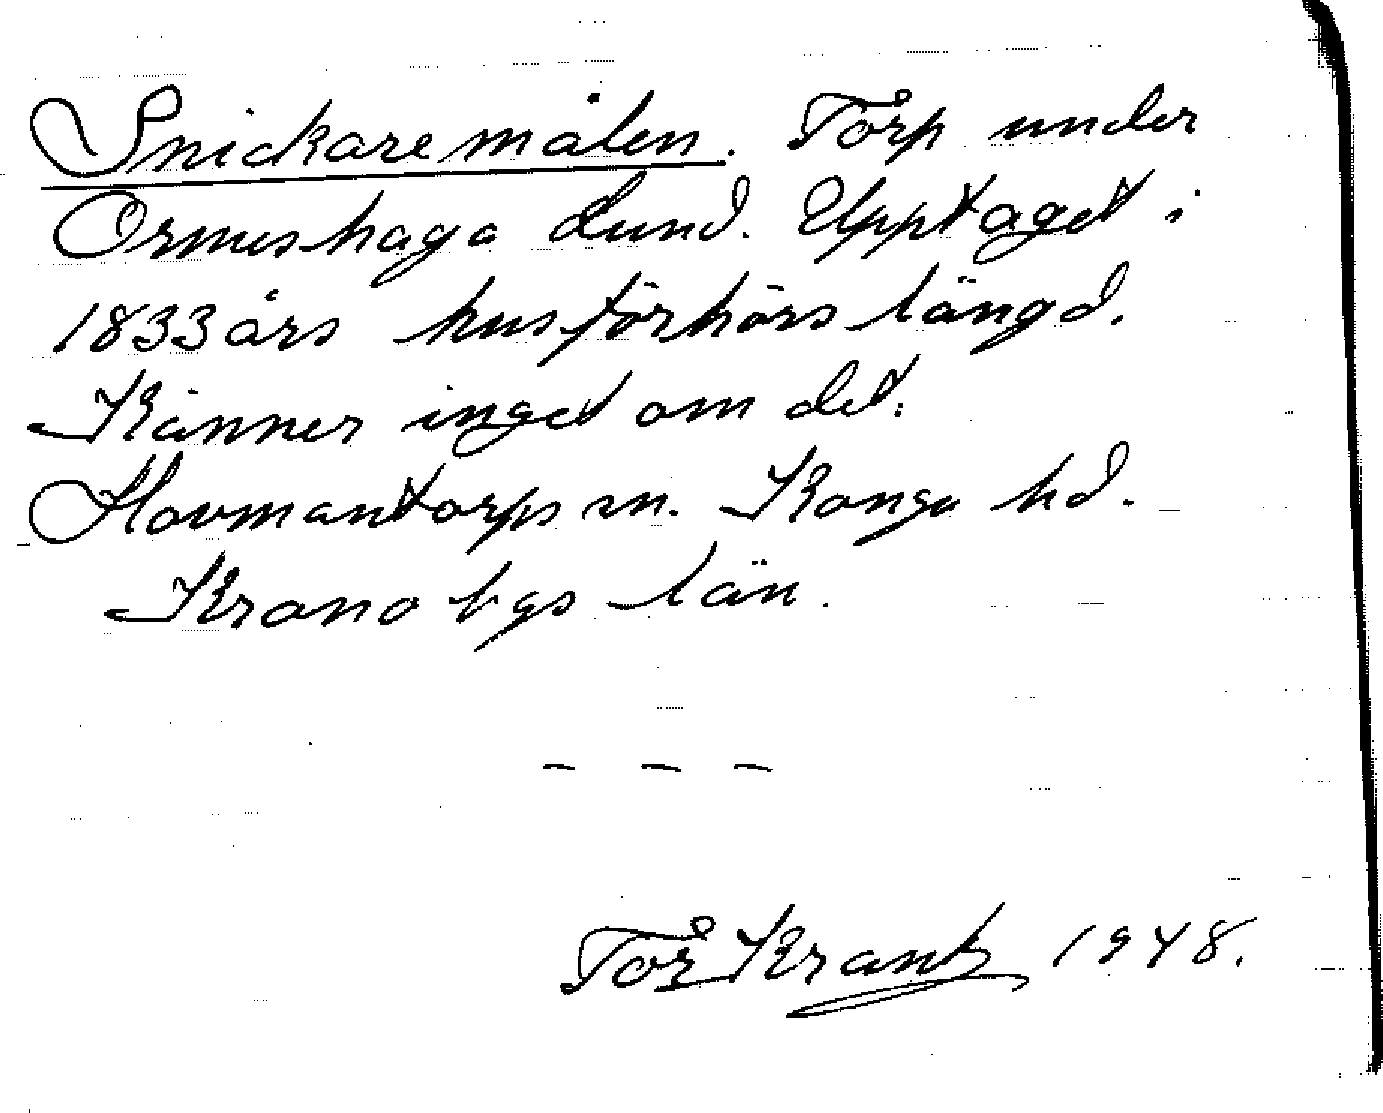 Snickaremålen. Torp under
Ormeshaga Lund. Upptaget i
1833 års husförhörslängd.
Känner inget om det.
Hovmantorps sn. Konga hd.
Kronobgs län.
- - -
Tor Krantz 1948.